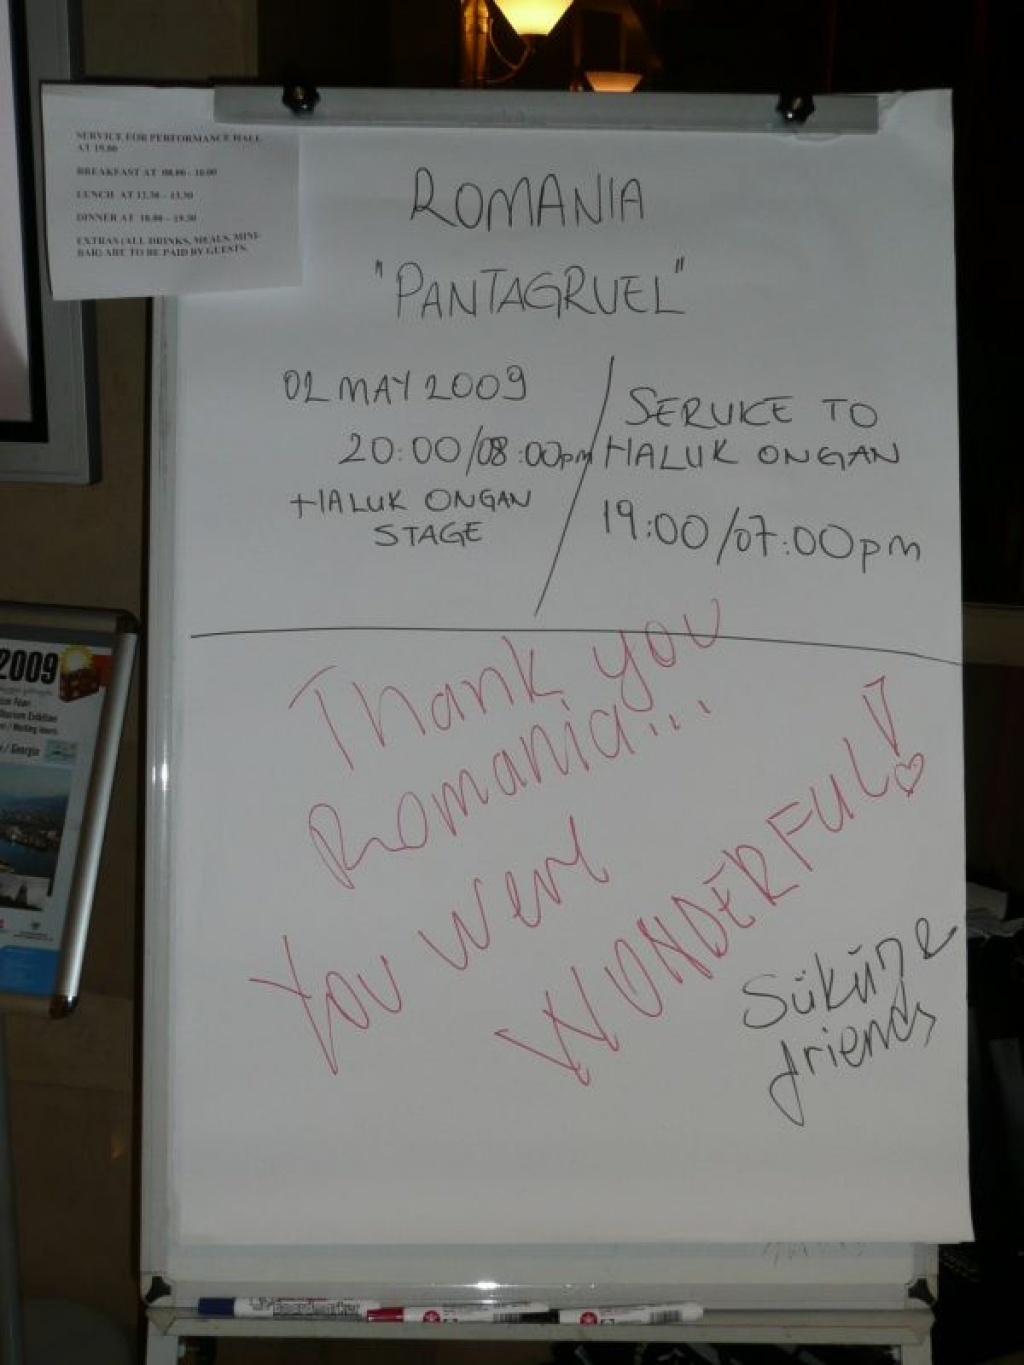 SERVICE FOR PERFORMANCE HALL
AT 19.00
BREAKFAST AT 08.00 - 10.00
LUNCH AT 12.30 - 13.30
DINNER AT 18.00 - 19.30
EXTRAS (ALL DRINKS, MEALS, MINI-
BAR) ARE TO BE PAID BY GUESTS.
ROMANIA
"PANTAGRUEL"
02 MAY 2009
20:00/08:00pm
HALUK ONGAN
STAGE
SERVICE TO
HALUK ONGAN
19:00/07:00pm
Thank you
Romania...
You were
WONDERFUL!
Sükün &
friends
2009
/ Georgia